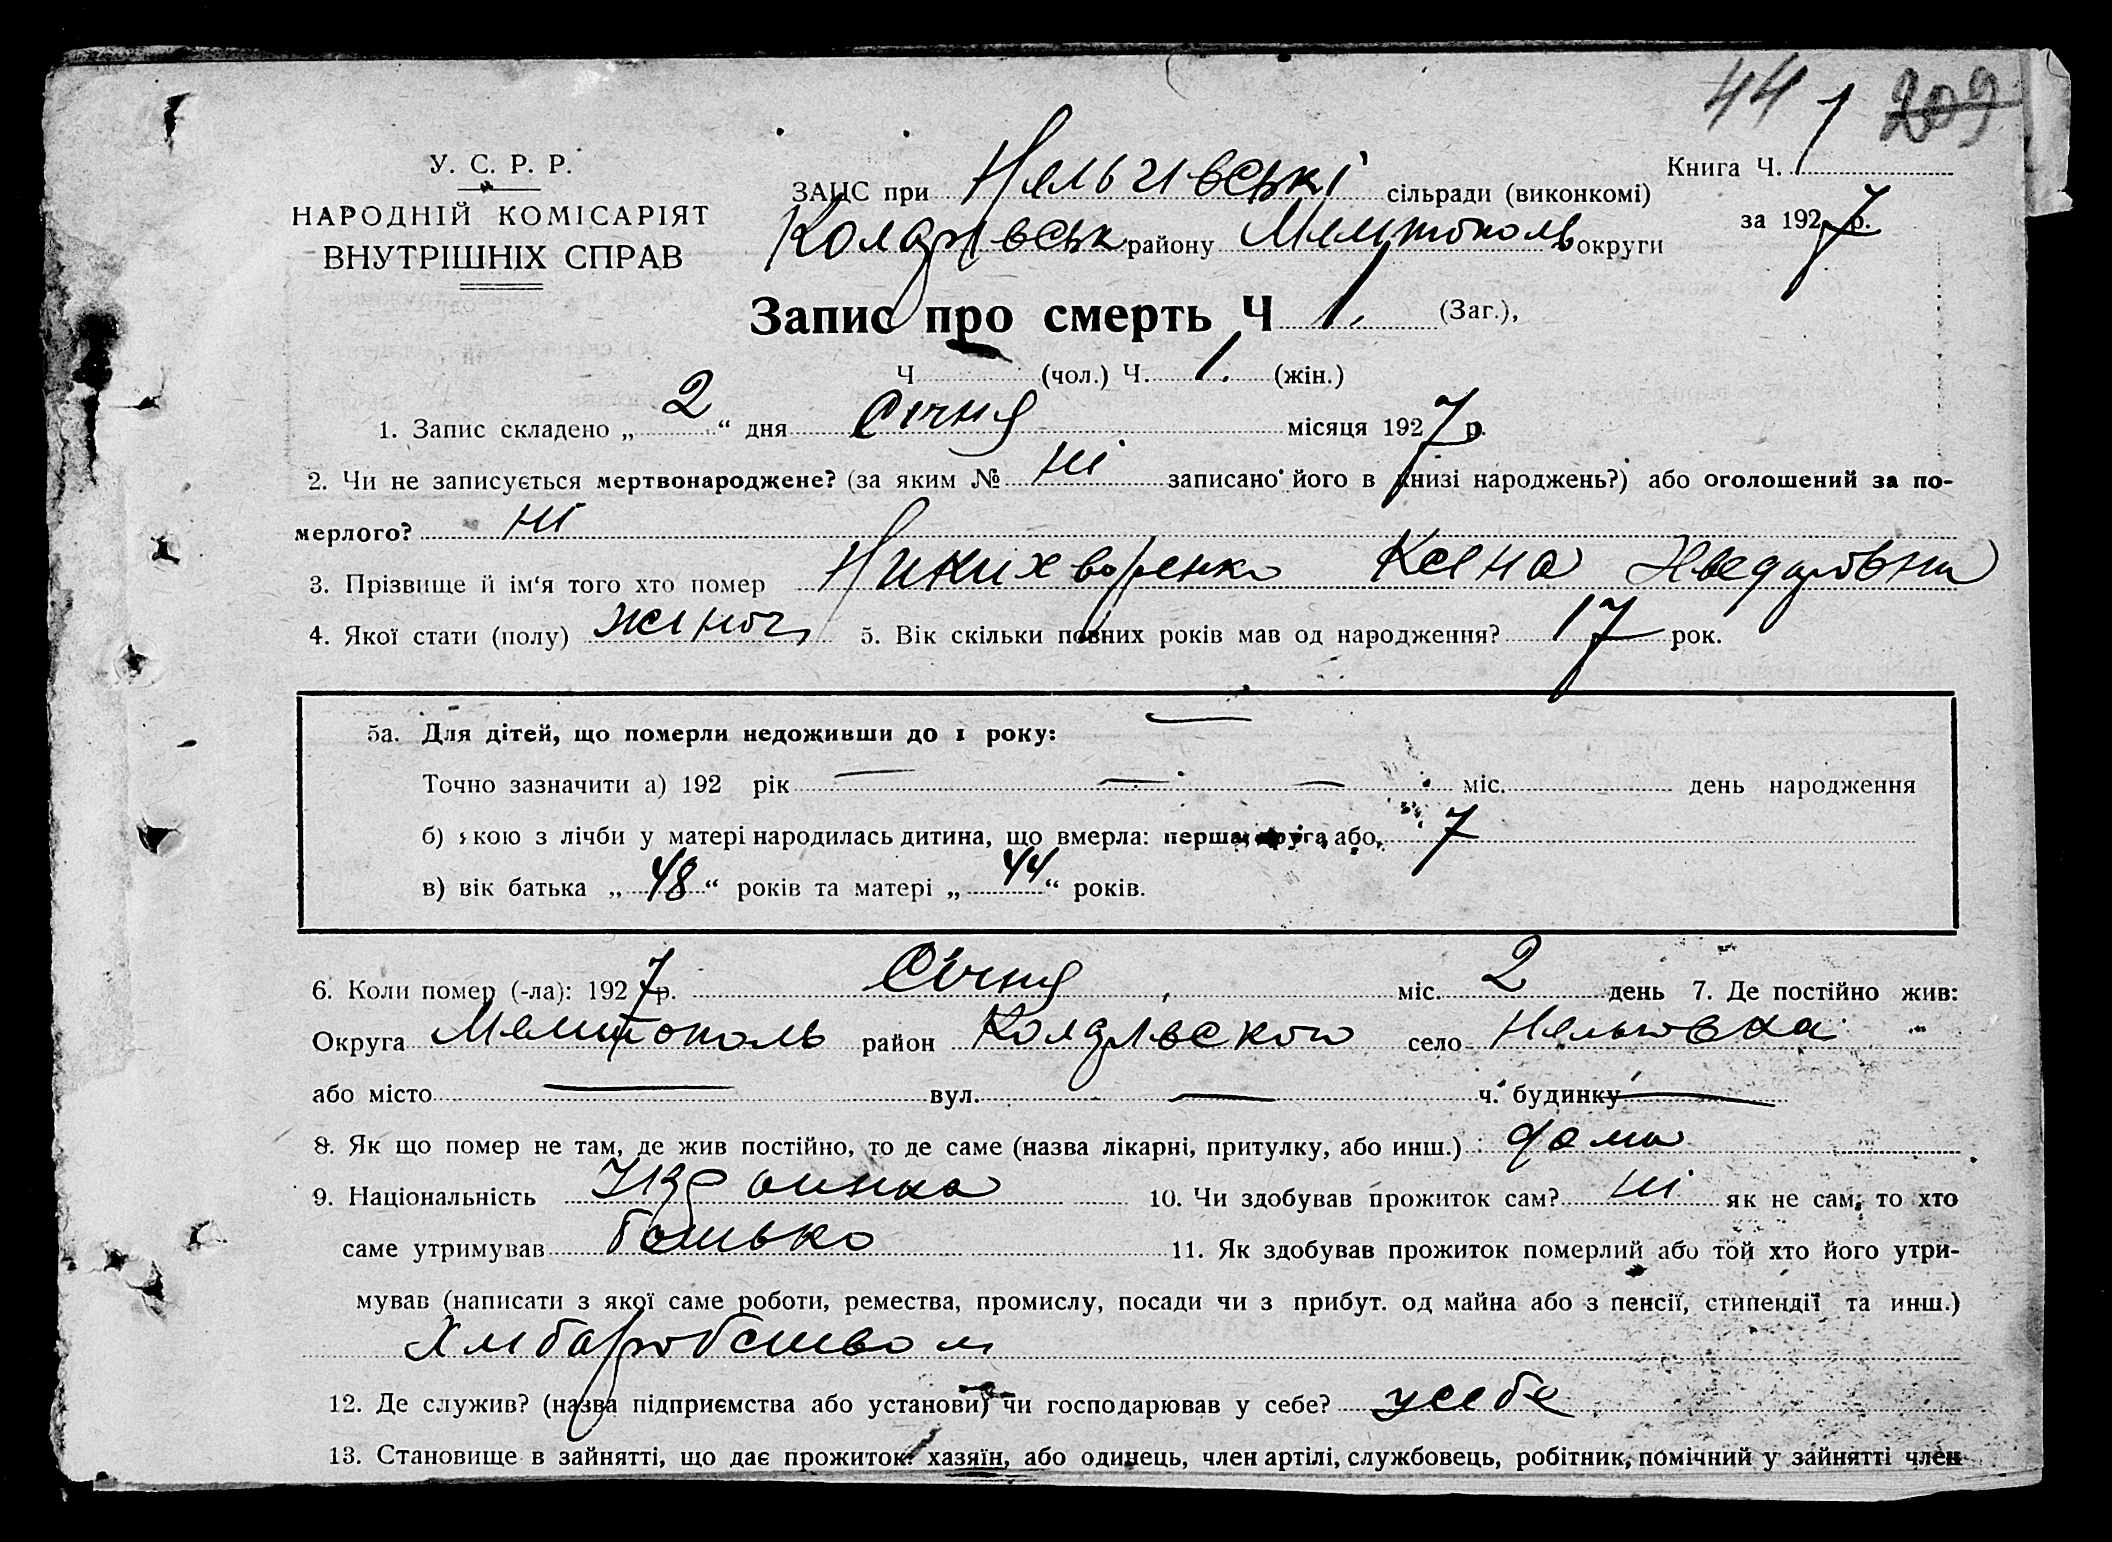 44 1 209
У. С. Р. Р.
НАРОДНІЙ КОМІСАРІЯТ
ВНУТРІШНІХ СПРАВ
ЗАЦС при Нельгівські сільради (виконкомі)
Книга Ч. 1
району Мелитополь округи
за 1927 р.
Запис про смерть Ч 1. (Заг.),
Ч (чол.) Ч. 1. (жін.)
1. Запис складено „ 2 “ дня Січня місяця 1927 р.
2. Чи не записується мертвонароджене? (за яким № ні записано його в книзі народжень?) або оголошений за по-
мерлого? ні
3. Прізвище й ім‘я того хто помер Никихворенко
4. Якої стати (полу) жіноч 5. Вік скільки повних років мав од народження? 17 рок.
5а. Для дітей, що померли недоживши до 1 року: —
Точно зазначити а) 192 рік — — — міс. день народження
б) якою з лічби у матері народилась дитина, що вмерла: перша, друга, або, 7
в) вік батька „ 48 “ років та матері „ 44 “ років.
6. Коли помер (-ла): 1927 р. Січня міс. 2 день 7. Де постійно жив:
Округа Мелитополь район село Нельговка
або місто — вул. — ч. будинку —
8. Як що помер не там, де жив постійно, то де саме (назва лікарні, притулку, або инш.) дома
9. Національність Украинка 10. Чи здобував прожиток сам? ні як не сам, то хто
саме утримував батько 11. Як здобував прожиток померлий або той хто його утри-
мував (написати з якої саме роботи, ремества, промислу, посади чи з прибут. од майна або з пенсії, стипендії та инш.)
Хлібаробством
12. Де служив? (назва підприємства або установи) чи господарював у себе? у себе
13. Становище в зайнятті, що дає прожиток: хазяїн, або одинець, член артілі, службовець, робітник, помічний у зайнятті член